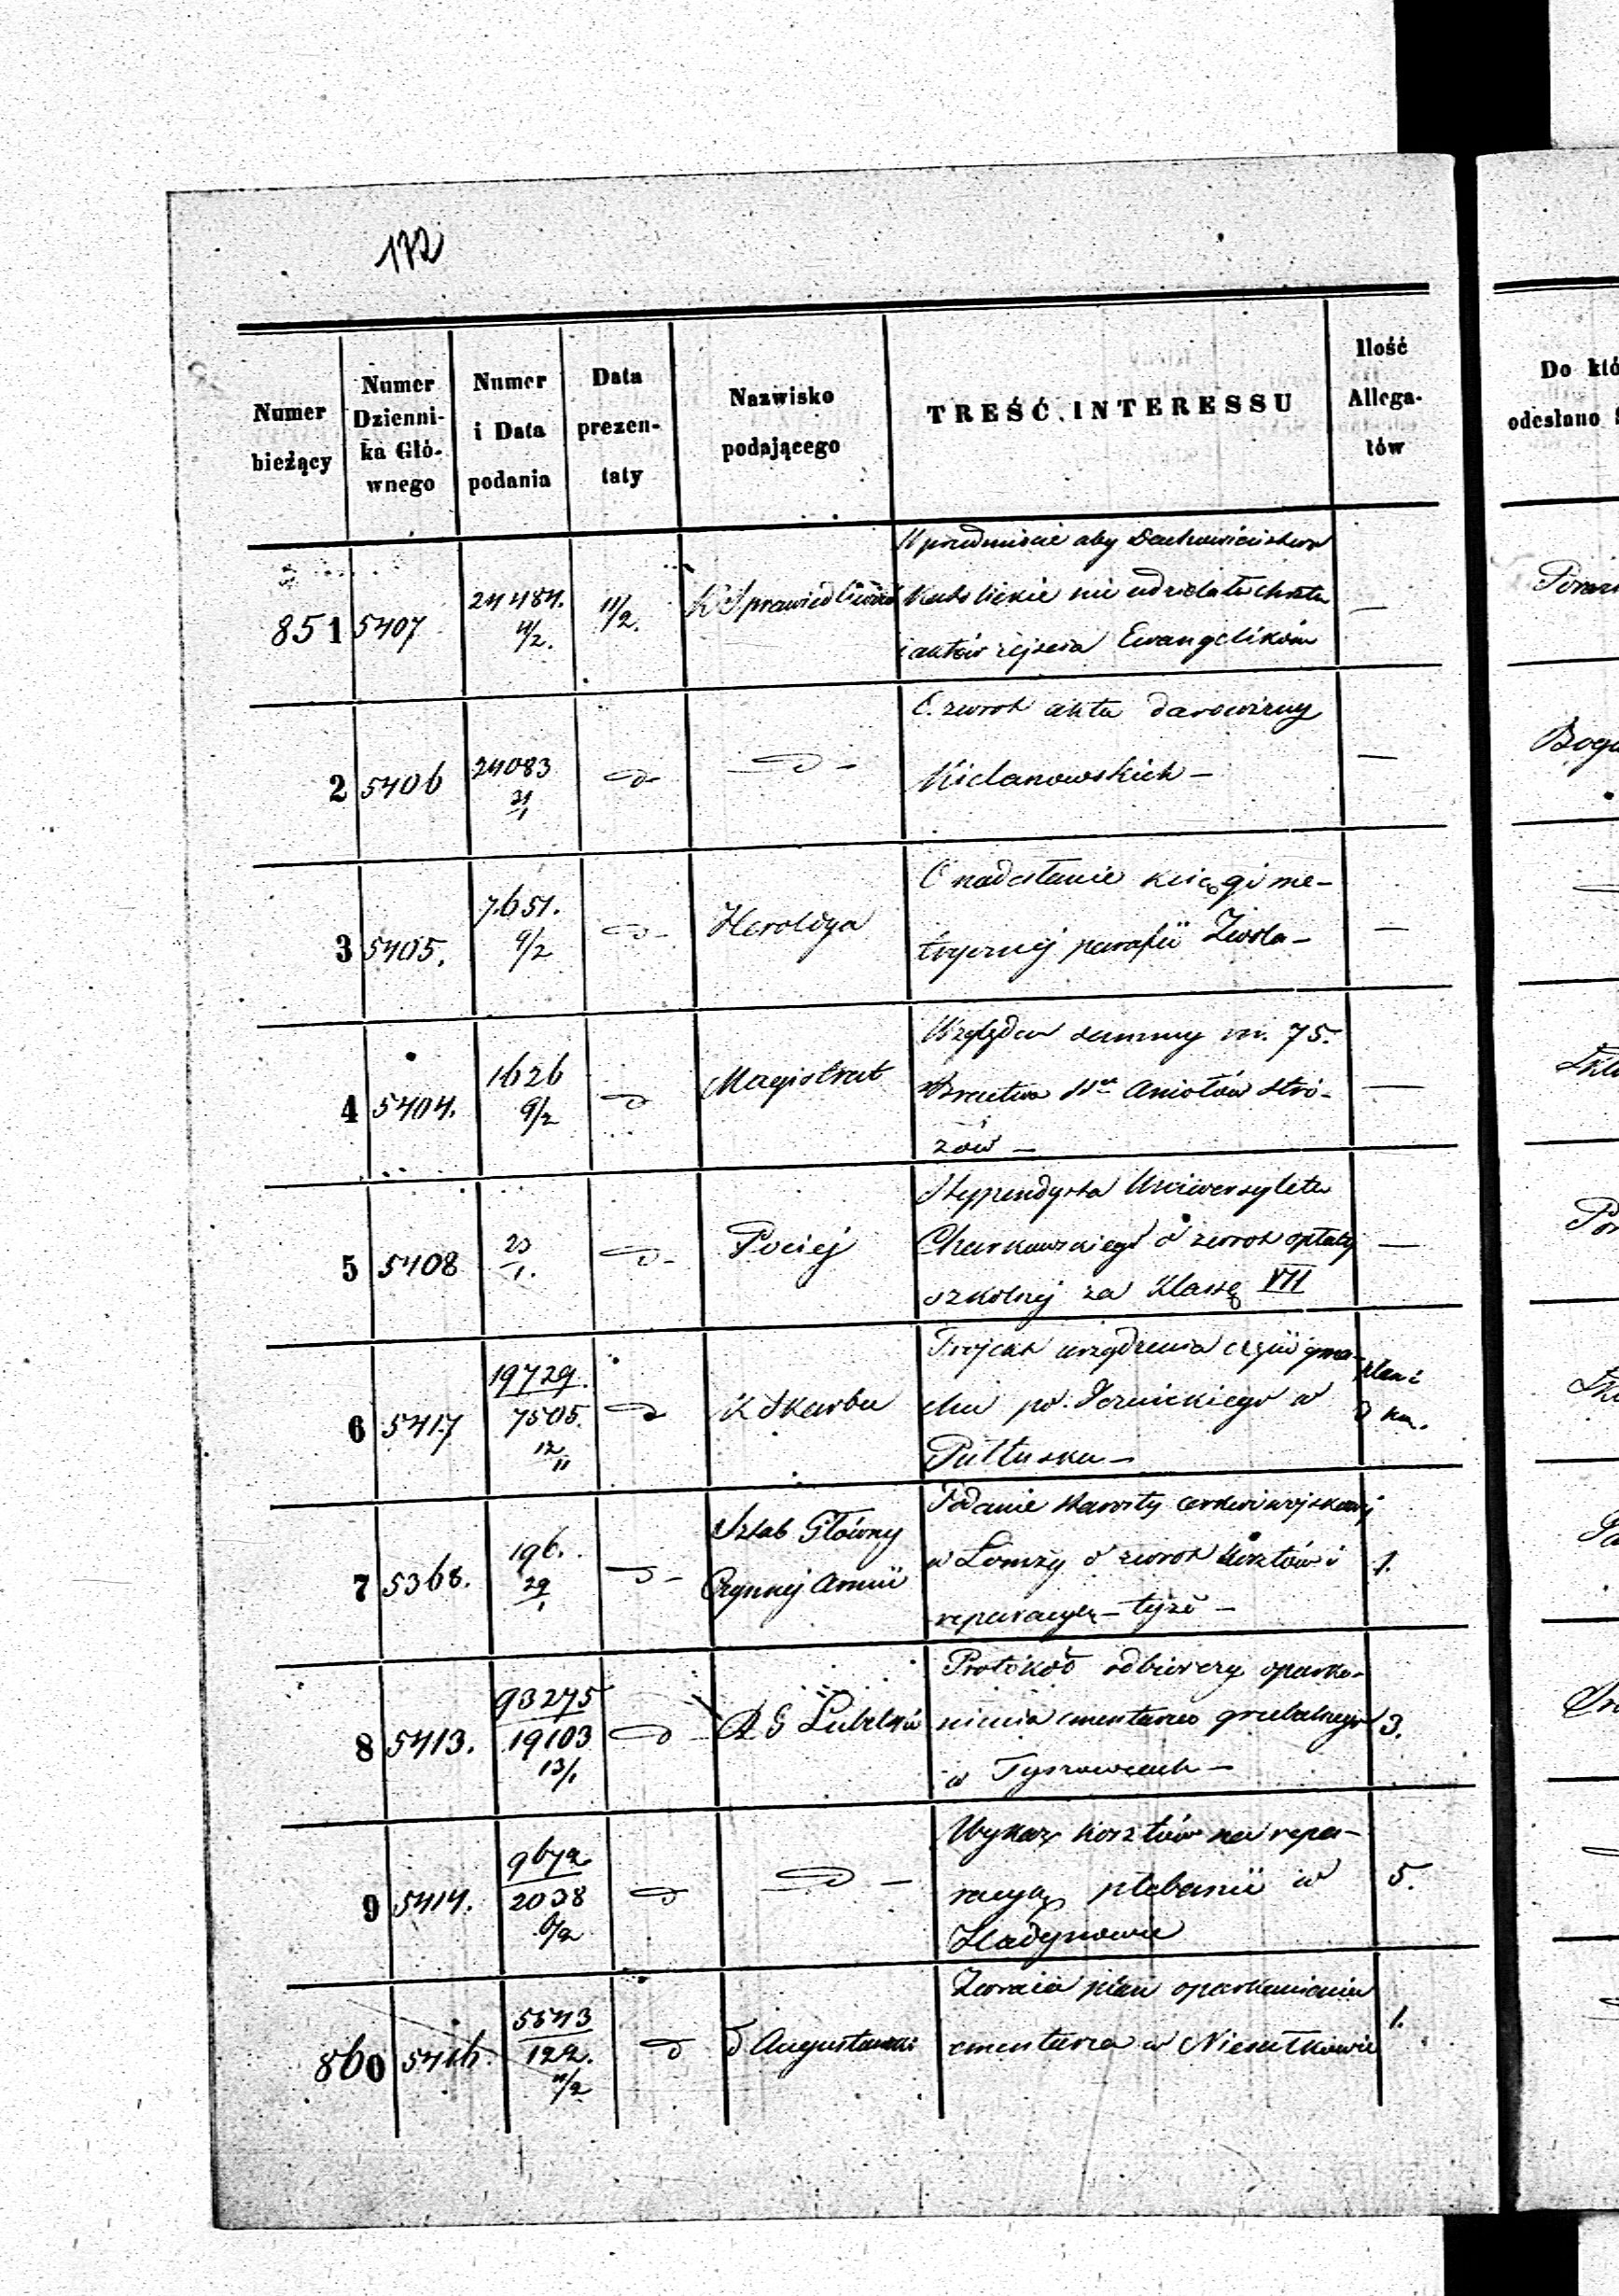 172
Numer bieżący
Numer Dzienni-ka Głó-wnego
Numer i Data podania
Data prezen-taty
Nazwisko podającego
TREŚĆ INTERESSU
Ilość Allega-tów
Do któ
odesłano
851 5407 24484. 4/2. 11/2. K Sprawiedliwości
W przedmiocie aby Duchowieństwo
Katolickie nie udzielało chrztu
i aktów zejścia Ewangelików —
2 5406 24083 31/1 d- — d -
O zwrot aktu darowizny
Kielanowskich — —
3 5405. 7651. 9/2 d- Heroldya
O nadesłanie księgi me-
trycznej parafii Zwola — —
4 5404. 1626 9/2 d Magistrat
Względem summy rs. 75.
Bractwa Aniołów Stró-
żów — —
5 5408 23/1. d- Pociej
Stypendysta Uniwersytetu
Charkowskiego o zwrot opłaty —
szkolnej za Klassę VII
6 5417 19729. 7505. 12/11 d K Skarbu
Projekt urządzenia części gma-
chu po w
Pułtusku — 
7 5368. 196. 29/1 d - Sztab Główny
Czynnej Armii
Podanie Starosty cerkwi wojskowej
w Łomży o zwrot kosztów i 1.
reparacyę — tejże —
8 5413. 93275 19103 13/1 d R G Lubelski
Protokół odbiorczy oparka-
nienia cmentarza grzebalnego 3.
w Tyszowcach —
9 5414. 9672 2038 6/2 d — d —
Wykaz kosztów na repa-
racyą plebanii w 5.
Hadynowie
860 5416. 5643 122. 11/2 d d Augustowski
Zwraca plan oparkanienia
cmentarza w 1.